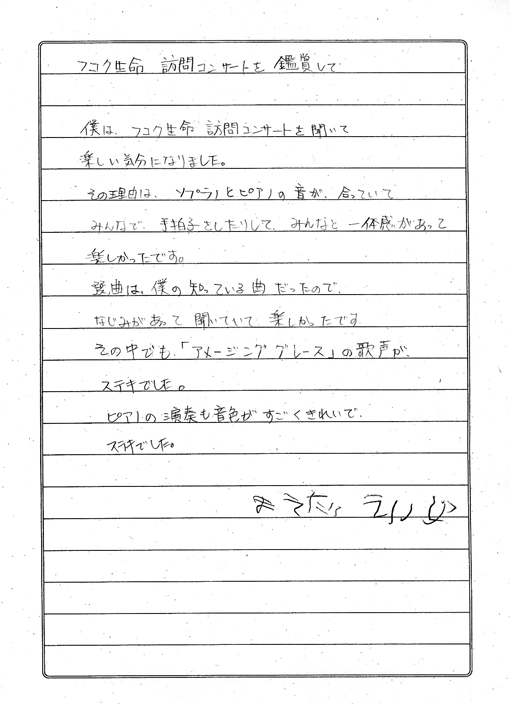 フコク生命 訪問コンサートを 鑑賞して
僕は、フコク生命 訪問コンサートを聞いて
楽しい気分になりました。
その理由は、ソプラノとピアノの音が、合っていて
みんなで、手拍子をしたりして、みんなと一体感があって
楽しかったです。
選曲は、僕の知っている曲だったので、
なじみがあって 聞いていて 楽しかったです
その中でも、「アメージンググレース」の歌声が、
ステキでした。
ピアノの演奏も音色がすごくきれいで、
ステキでした。